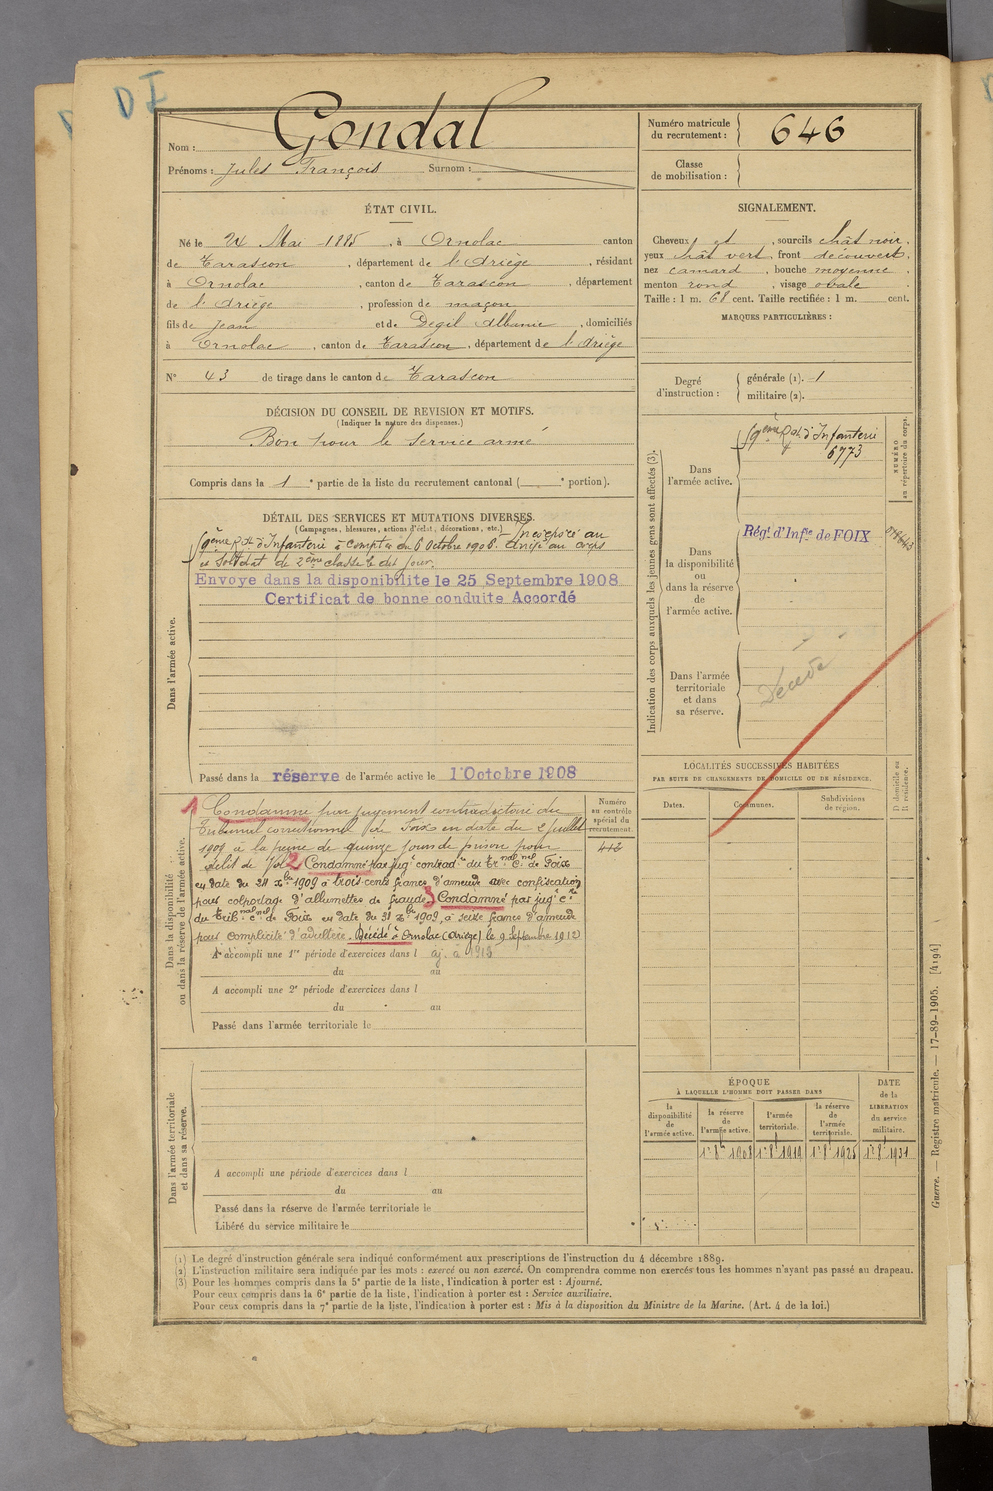 DI
Gondal
Nom :
Prénoms : Jules François Surnom :
Numéro matricule
du recrutement : 646
Classe
de mobilisation :
ÉTAT CIVIL.
Né le 24 Mai 1885, à Ornolac canton
de Tarascon, département de l'Ariège, résidant
à Ornolac, canton de Tarascon, département
de l'Ariège, profession de maçon
fils de Jean et de Degil Albanie, domiciliés
à Ornolac, canton de Tarascon, département de l'Ariège
N° 43 de tirage dans le canton de Tarascon
SIGNALEMENT.
Cheveux et, sourcils chât noir.
yeux chât vert, front découvert,
nez camard, bouche moyenne,
menton rond, visage ovale.
Taille : 1 m. 68 cent. Taille rectifiée : 1 m. cent.
MARQUES PARTICULIÈRES :
Degré
d'instruction :
générale (1). 1
militaire (2).
DÉCISION DU CONSEIL DE REVISION ET MOTIFS.
(Indiquer la nature des dispenses.)
Bon pour le service armé
Compris dans la 1 e partie de la liste du recrutement cantonal ( e portion).
DÉTAIL DES SERVICES ET MUTATIONS DIVERSES.
(Campagnes, blessures, actions d'éclat, décorations, etc.)
59ème Rgt d'Infanterie à compter du 6 Octobre 1906. Incorporé au
Arrivé au corps
et soldat de 2ème classe le dit jour.
Envoye dans la disponibilite le 25 Septembre 1908
Certificat de bonne conduite Accordé
Dans l'armée active.
Passé dans la réserve de l'armée active le 1 Octobre 1908
Indication des corps auxquels les jeunes gens sont affectés (3).
Dans
l'armée active.
59ème Rgt d'Infanterie
6773
NUMÉRO
au répertoire du corps.
Dans
la disponibilité
ou
dans la réserve
de
l'armée active.
Régt d'Infie de FOIX
Dans l'armée
territoriale
et dans
sa réserve.
Décédé
LOCALITÉS SUCCESSIVES HABITÉES
PAR SUITE DE CHANGEMENTS DE DOMICILE OU DE RÉSIDENCE.
Dates.
Communes.
Subdivisions
de région.
D domicile ou
R résidence.
Dans la disponibilité
ou dans la réserve de l'armée active.
Numéro
au contrôle
spécial du
recrutement.
412
1 Condamné par jugement contradictoire du
Tribunal correctionnel de Foix en date du 2 juillet
1909 à la peine de quinze jours de prison pour
délit de vol 2 Condamné par jugt contradre du trnal Cnel de Foix
en date du 24 Xbre 1909 à trois cents francs d'amende avec confiscation
pour colportage d'allumettes de fraude. 3 Condamné par jugt cre
du tribnal cnel de Foix en date du 31 Xbre 1909, à seize francs d'amende
pour complicité d'adultère. Décédé à Ornolac (Ariège) le 9 Septembre 1912
A accompli une 1re période d'exercices dans l aj. à 1913
du au
A accompli une 2e période d'exercices dans l
du au
Passé dans l'armée territoriale le
Dans l'armée territoriale
et dans sa réserve.
A accompli une période d'exercices dans l
du au
Passé dans la réserve de l'armée territoriale le
Libéré du service militaire le
ÉPOQUE
À LAQUELLE L'HOMME DOIT PASSER DANS
la
disponibilité
de
l'armée active.
la réserve
de
l'armée active.
l'armée
territoriale.
la réserve
de
l'armée
territoriale.
DATE
de la
LIBÉRATION
du service
militaire.
1r 8bre 1908 1r 8bre 1919 1r 8bre 1925 1r 8bre 1931
(1) Le degré d'instruction générale sera indiqué conformément aux prescriptions de l'instruction du 4 décembre 1889.
(2) L'instruction militaire sera indiquée par les mots : exercé ou non exercé. On comprendra comme non exercés tous les hommes n'ayant pas passé au drapeau.
(3) Pour les hommes compris dans la 5e partie de la liste, l'indication à porter est : Ajourné.
Pour ceux compris dans la 6e partie de la liste, l'indication à porter est : Service auxiliaire.
Pour ceux compris dans la 7e partie de la liste, l'indication à porter est : Mis à la disposition du Ministre de la Marine. (Art. 4 de la loi.)
Guerre. — Registre matricule. — 17-89-1905. [4194]